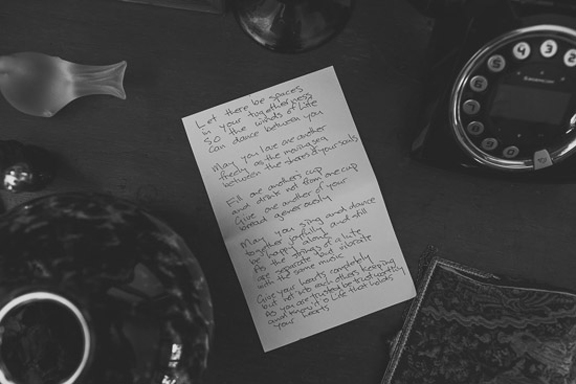 Let there be spaces
in your togetherness
So the winds of life
can dance between you
May you love one another
freely as the moving sea
between the shores of your souls
Fill one another's cup
and drink not from one cup
Give one another of your
bread generously
May you sing and dance
together joyfully and still
be happy alone
As the strings of a lute
are separate and vibrate
with the same music
Give your hearts completely
but not into each others keeping
As you are trusted be trustworthy
and know it's Life that holds
your hearts